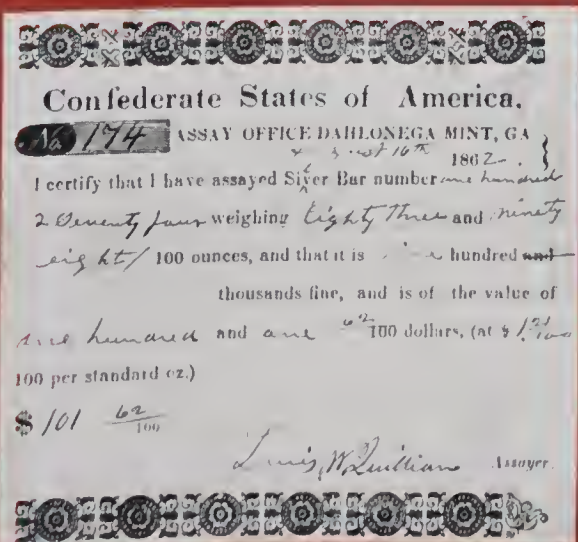 Confederate States of America.
No 174 ASSAY OFFICE DAHLONEGA MINT, GA
16th 1862
I certify that I have assayed Silver Bar number one hundred
& Seventy four weighing Eighty Three and ninety
eight / 100 ounces, and that it is hundred and
thousands fine, and is of the value of
one hundred and one 62 100 dollars, (at $ 1 21/100
100 per standard oz.)
$ 101 62/100
Lewis W. Quillian Assayer.